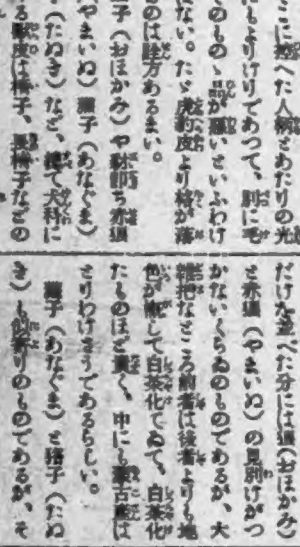 こに抱へた人柄とあたりの光
にもよりけりであつて、別に毛
そのものゝ品が悪いといふわけ
ない。たゞ虎豹皮より格が落
るのは致方あるまい。
子（おほかみ）や豺即ち赤狼
やまいぬ）貛子（あなぐま）
（たぬき）など、総て犬科に
る獣皮は椅子、長椅子などの
だけを並べた分には狼（おほかみ）
と赤狼（やまいぬ）の見別けがつ
かないくらゐのものであるが、大
雑把なところ前者は後者よりも地
色が概して白茶化てゐて、白茶化
たものほど貴く、中にも蒙古産は
とりわけさうであるらしい。
貛子（あなぐま）と狢子（たぬ
き）も似寄りのものであるが、そ